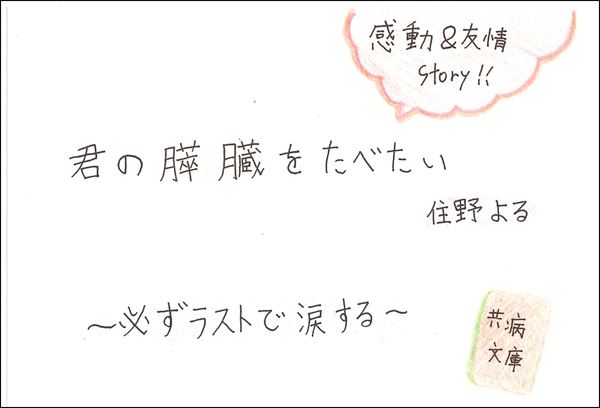 感動&友情
Story!!
君の膵臓をたべたい
住野よる
～必ずラストで涙する～
共病
文庫